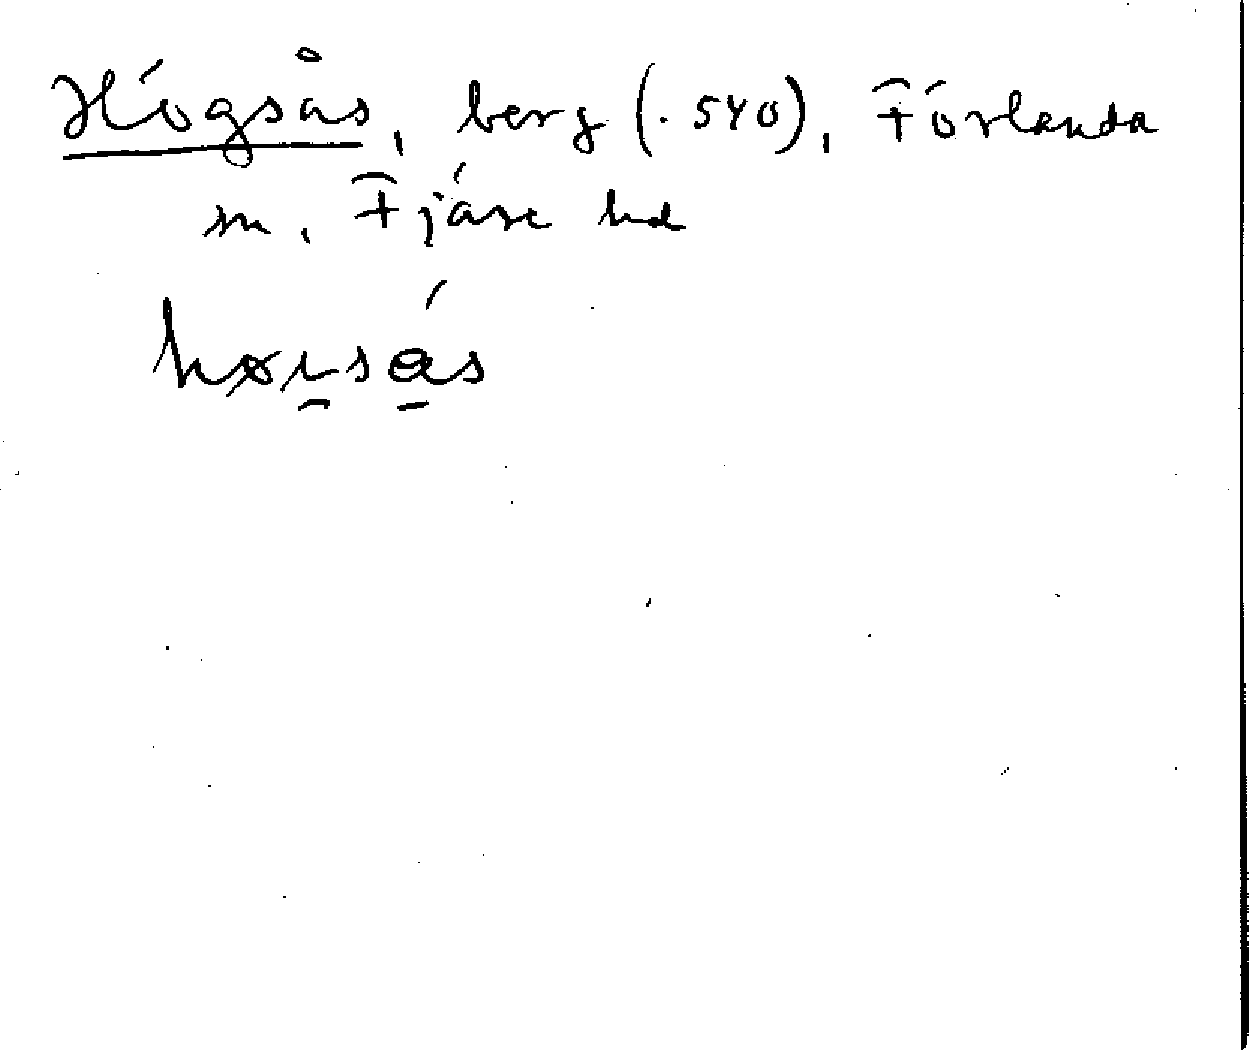 Högsås, berg (.540), Förlanda
sn, Fjäre hd